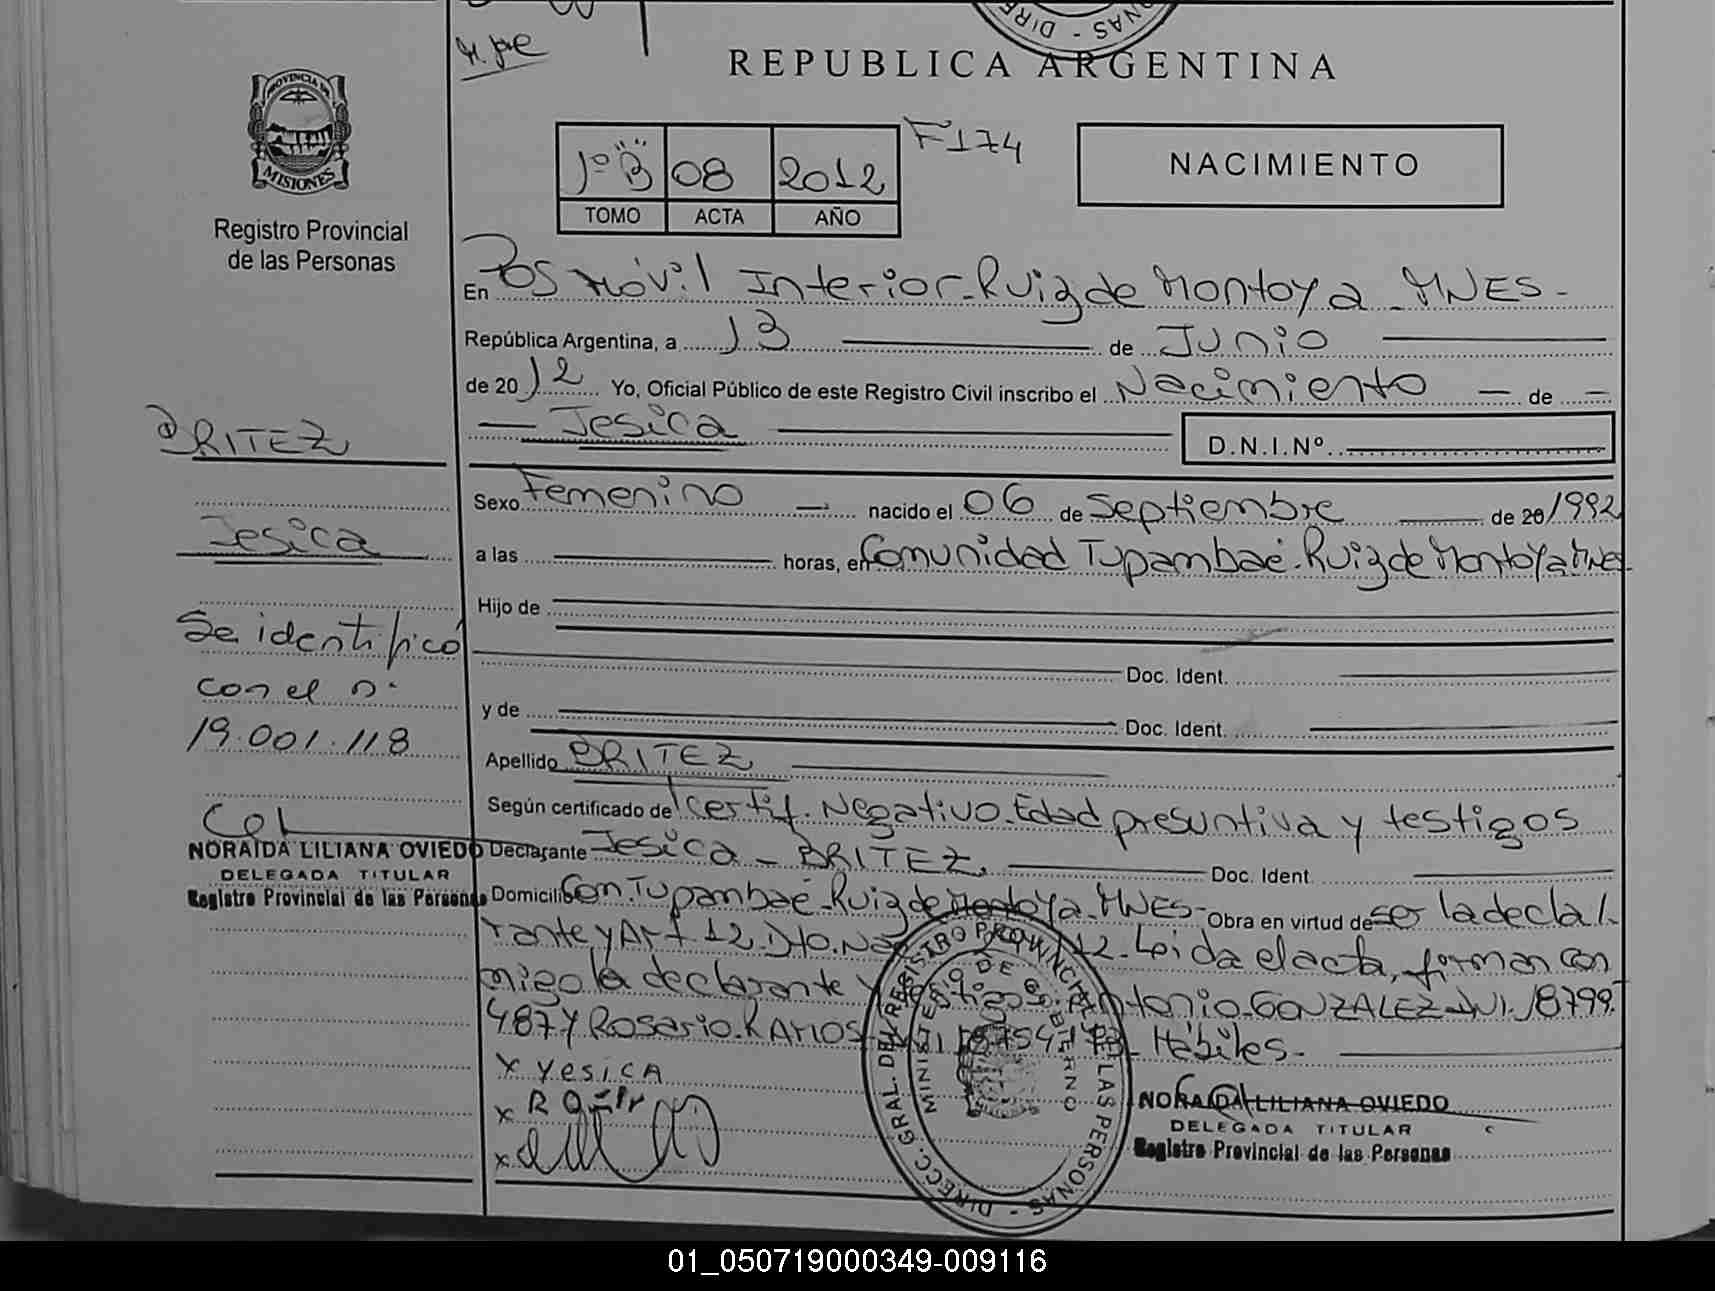 REPUBLICA ARGENTINA
PROVINCIA DE
MISIONES
Registro Provincial
de las Personas
1º "B" 08 2012 F174
TOMO ACTA AÑO
NACIMIENTO
En Pos Móvil Interior-Ruiz de Montoya-MNES-
República Argentina, a 13 de Junio
de 2012 Yo, Oficial Público de este Registro Civil inscribo el Nacimiento — de —
— Jesica D.N.I.Nº
BRITEZ
Jesica
Se identificó
con el n·
19.001.118
NORAIDA LILIANA OVIEDO
DELEGADA TITULAR
Registro Provincial de las Personas
Sexo Femenino — nacido el 06 de septiembre de 20/1992
a las horas, en Comunidad Tupambaé-Ruiz de Montoya MNES
Hijo de
Doc. Ident.
y de Doc. Ident.
Apellido BRITEZ
Según certificado de Certif. Negativo-Edad presuntiva y testigos
Declarante Jesica - BRITEZ. Doc. Ident.
Domicilio Com. Tupambaé-Ruiz de Montoya-MNES- Obra en virtud de ser la decla/-
rante y Art 12. Dto. 12- Leida el acta, firman con
migo la declarante y testigos: Antonio-GONZALEZ-DNI.18799.
487 y Rosario-RAMOS Hábiles-
x yesica
x
x
DIRECC. GRAL. DEL REGISTRO PROVINCIAL DE LAS PERSONAS -
MINISTERIO DE GOBIERNO
NORAIDA LILIANA OVIEDO
DELEGADA TITULAR
Registro Provincial de las Personas
01_050719000349-009116